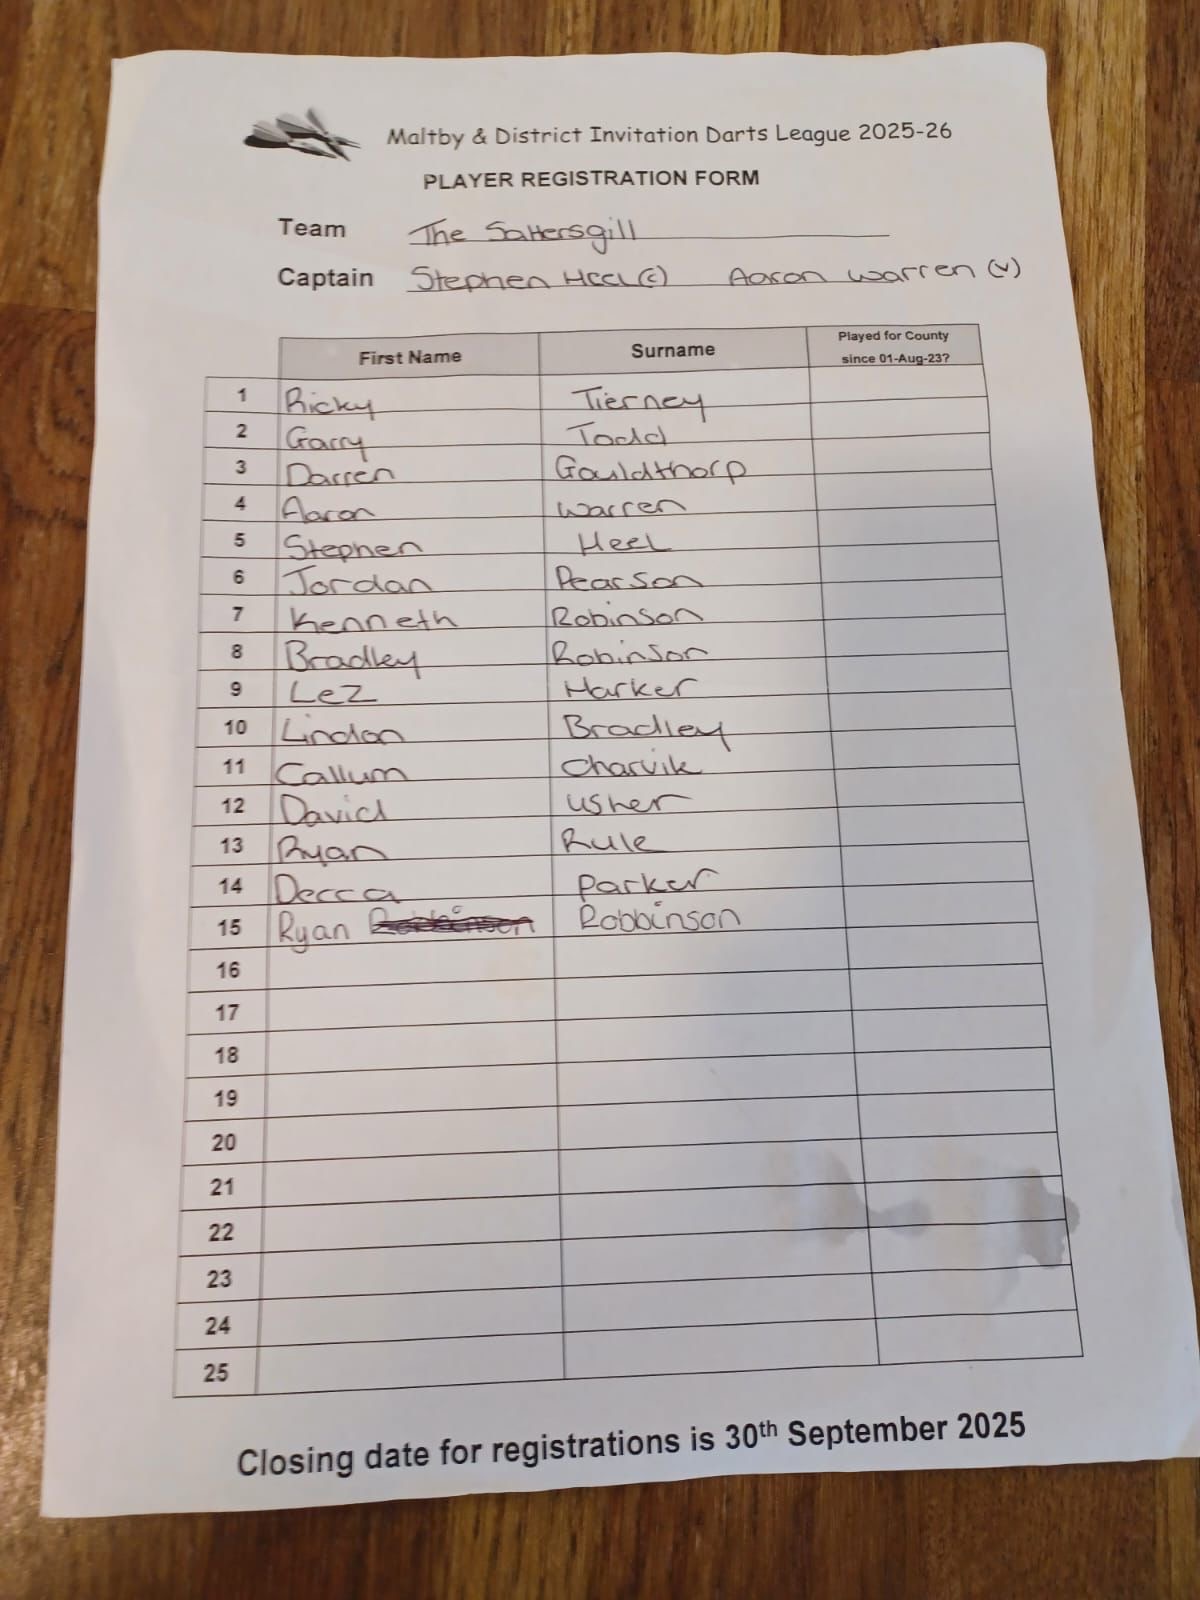 Maltby & District Invitation Darts League 2025-26
PLAYER REGISTRATION FORM
Team The Saltersgill
Captain Stephen Heel (c) Aaron Warren (v)
First Name Surname Played for County since 01-Aug-23?
1 Ricky Tierney
2 Garry Todd
3 Darren Gouldthorp
4 Aaron Warren
5 Stephen Heel
6 Jordan Pearson
7 Kenneth Robinson
8 Bradley Robinson
9 Lez Harker
10 Lindon Bradley
11 Callum Charvik
12 David Usher
13 Ryan Rule
14 Decca Parker
15 Ryan Robbinson Robbinson
16
17
18
19
20
21
22
23
24
25
Closing date for registrations is 30th September 2025